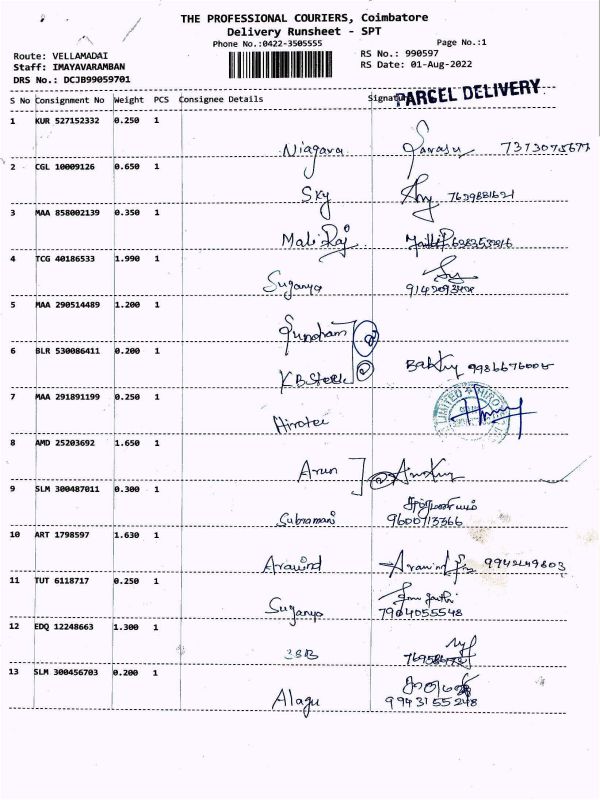 THE PROFESSIONAL COURIERS, Coimbatore
Delivery Runsheet - SPT
Phone No.:0422-3505555
Page No.:1
Route: VELLAMADAI
RS No.: 990597
Staff: IMAYAVARAMBAN
RS Date: 01-Aug-2022
DRS No.: DCJB99059701
PARCEL DELIVERY
S No Consignment No Weight PCS Consignee Details Signature
1 KUR 527152332 0.250 1
Niagara
2 CGL 10009126 0.650 1
Sky
3 MAA 858002139 0.350 1
4 TCG 40186533 1.990 1
Suganya
5 MAA 290514489 1.200 1
6 BLR 530086411 0.200 1
KB Steel 9986676005
7 MAA 291891199 0.250 1
Hirotec LIMITED
8 AMD 25203692 1.650 1
Arun
9 SLM 300487011 0.300 1
Subramani 9600713366
10 ART 1798597 1.630 1
Aravind Aravind
11 TUT 6118717 0.250 1
Suganya 7904055548
12 EDQ 12248663 1.300 1
13 SLM 300456703 0.200 1
Alagu 9943155248